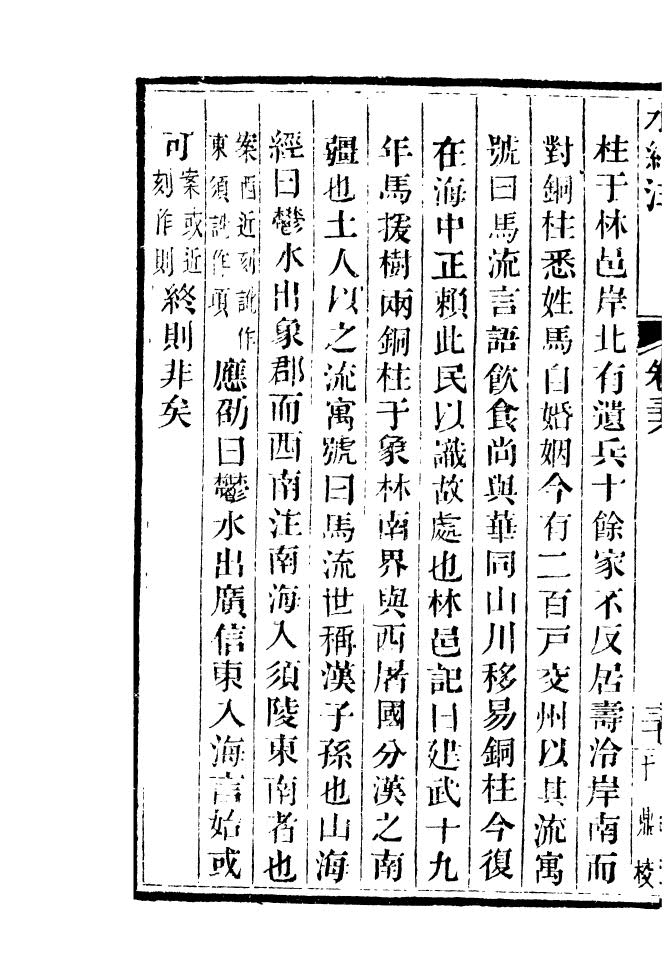 水經注
卷三十六
鼎校
柱于林邑岸北有遺兵十餘家不反居壽泠岸南而
對銅柱悉姓馬自婚姻今有二百戸交州以其流寓
號曰馬流言語飲食尚與華同山川移易銅柱今復
在海中正賴此民以識故處也林邑記曰建武十九
年馬援樹兩銅柱于象林南界與西屠國分漢之南
疆也土人以之流寓號曰馬流世稱漢子孫也山海
經曰鬱水出象郡而西南注南海入須陵東南者也
案西近刻訛作
東須訛作項
應劭曰鬱水出廣信東入海言始或
可
案或近
刻作則
終則非矣